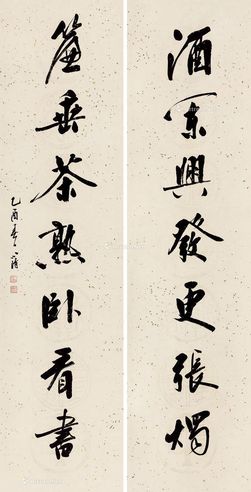 酒阑興發更張燭
簾垂茶熟卧看書
乙酉春